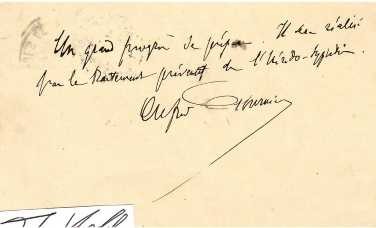 Un grand progrès se prépare. Il sera réalisé
par le traitement préventif de l'hérédo-syphilis.
Alfred Fournier